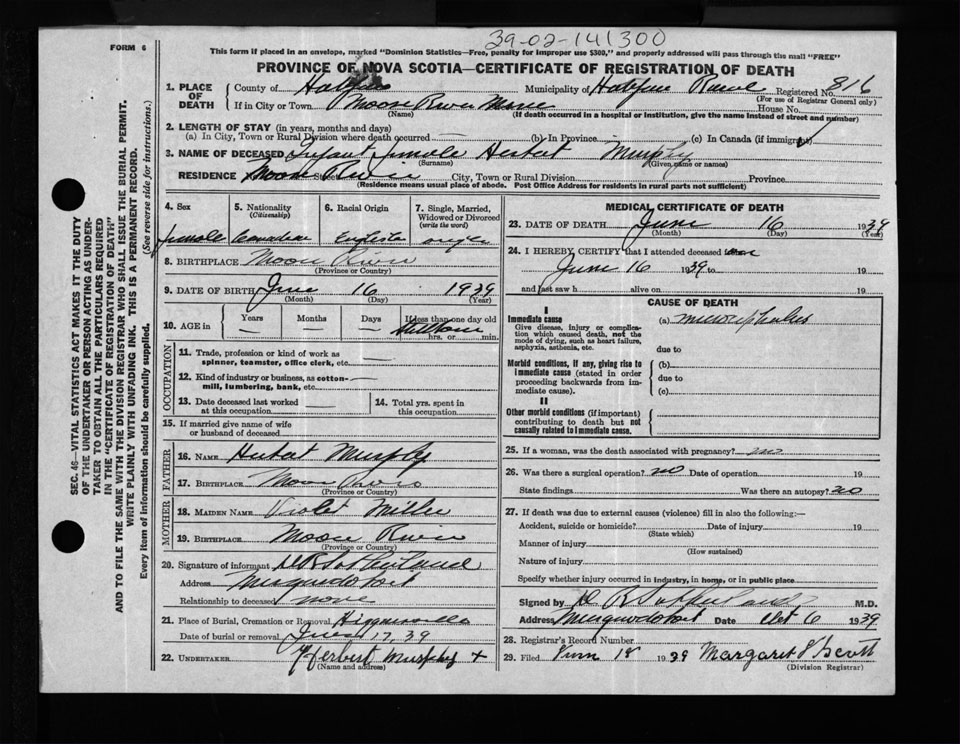 39-02-141300
FORM 6
This form if placed in an envelope, marked "Dominion Statistics—Free, penalty for improper use $300," and properly addressed will pass through the mail "FREE"
PROVINCE OF NOVA SCOTIA—CERTIFICATE OF REGISTRATION OF DEATH
1. PLACE OF DEATH
County of Halifax Municipality of Halifax Registered No. 816
(For use of Registrar General only)
If in City or Town Moose River House No.
(Name) (If death occurred in a hospital or institution, give the name instead of street and number)
2. LENGTH OF STAY (in years, months and days)
(a) In City, Town or Rural Division where death occurred — (b) In Province (c) In Canada (if immigrant)
3. NAME OF DECEASED Infant Female Herbert Murphy
(Surname) (Given name or names)
RESIDENCE Moose River City, Town or Rural Division Province
(Residence means usual place of abode. Post Office Address for residents in rural parts not sufficient)
4. Sex 5. Nationality (Citizenship) 6. Racial Origin 7. Single, Married, Widowed or Divorced (write the word)
female Canadian English single
8. BIRTHPLACE Moose River
(Province or Country)
9. DATE OF BIRTH June 16 1939
(Month) (Day) (Year)
10. AGE in Years Months Days If less than one day old
— — — Stillborn
hrs. or min.
OCCUPATION
11. Trade, profession or kind of work as spinner, teamster, office clerk, etc. —
12. Kind of industry or business, as cotton-mill, lumbering, bank, etc. —
13. Date deceased last worked at this occupation — 14. Total yrs. spent in this occupation
15. If married give name of wife or husband of deceased
FATHER
16. NAME Herbert Murphy
17. BIRTHPLACE Moose River
(Province or Country)
MOTHER
18. MAIDEN NAME Violet Miller
19. BIRTHPLACE Moose River
(Province or Country)
20. Signature of informant D R Sutherland
Address Musquodoboit
Relationship to deceased none
21. Place of Burial, Cremation or Removal Higginsville
Date of burial or removal June 17, 39
22. UNDERTAKER Herbert Murphy
(Name and address)
MEDICAL CERTIFICATE OF DEATH
23. DATE OF DEATH June 16 1939
(Month) (Day) (Year)
24. I HEREBY CERTIFY that I attended deceased
June 16 1939 to 19
and last saw h alive on 19
CAUSE OF DEATH
Immediate cause (a)
Give disease, injury or complication which caused death, not the mode of dying, such as heart failure, asphyxia, asthenia, etc.
due to
Morbid conditions, if any, giving rise to immediate cause (stated in order proceeding backwards from immediate cause).
(b)
due to
(c)
II
Other morbid conditions (if important) contributing to death but not causally related to immediate cause.
25. If a woman, was the death associated with pregnancy? no
26. Was there a surgical operation? no Date of operation 19
State findings Was there an autopsy? no
27. If death was due to external causes (violence) fill in also the following:—
Accident, suicide or homicide? Date of injury 19
(State which)
Manner of injury
(How sustained)
Nature of injury
Specify whether injury occurred in industry, in home, or in public place
Signed by D R Sutherland M.D.
Address Musquodoboit Date Oct 6 1939
28. Registrar's Record Number
29. Filed 18 1939 Margaret Scott
(Division Registrar)
SEC. 46—VITAL STATISTICS ACT MAKES IT THE DUTY
OF THE UNDERTAKER OR PERSON ACTING AS UNDER-
TAKER TO OBTAIN ALL THE PARTICULARS REQUIRED
IN THE "CERTIFICATE OF REGISTRATION OF DEATH"
AND TO FILE THE SAME WITH THE DIVISION REGISTRAR WHO SHALL ISSUE THE BURIAL PERMIT.
WRITE PLAINLY WITH UNFADING INK. THIS IS A PERMANENT RECORD.
Every item of information should be carefully supplied. (See reverse side for instructions.)